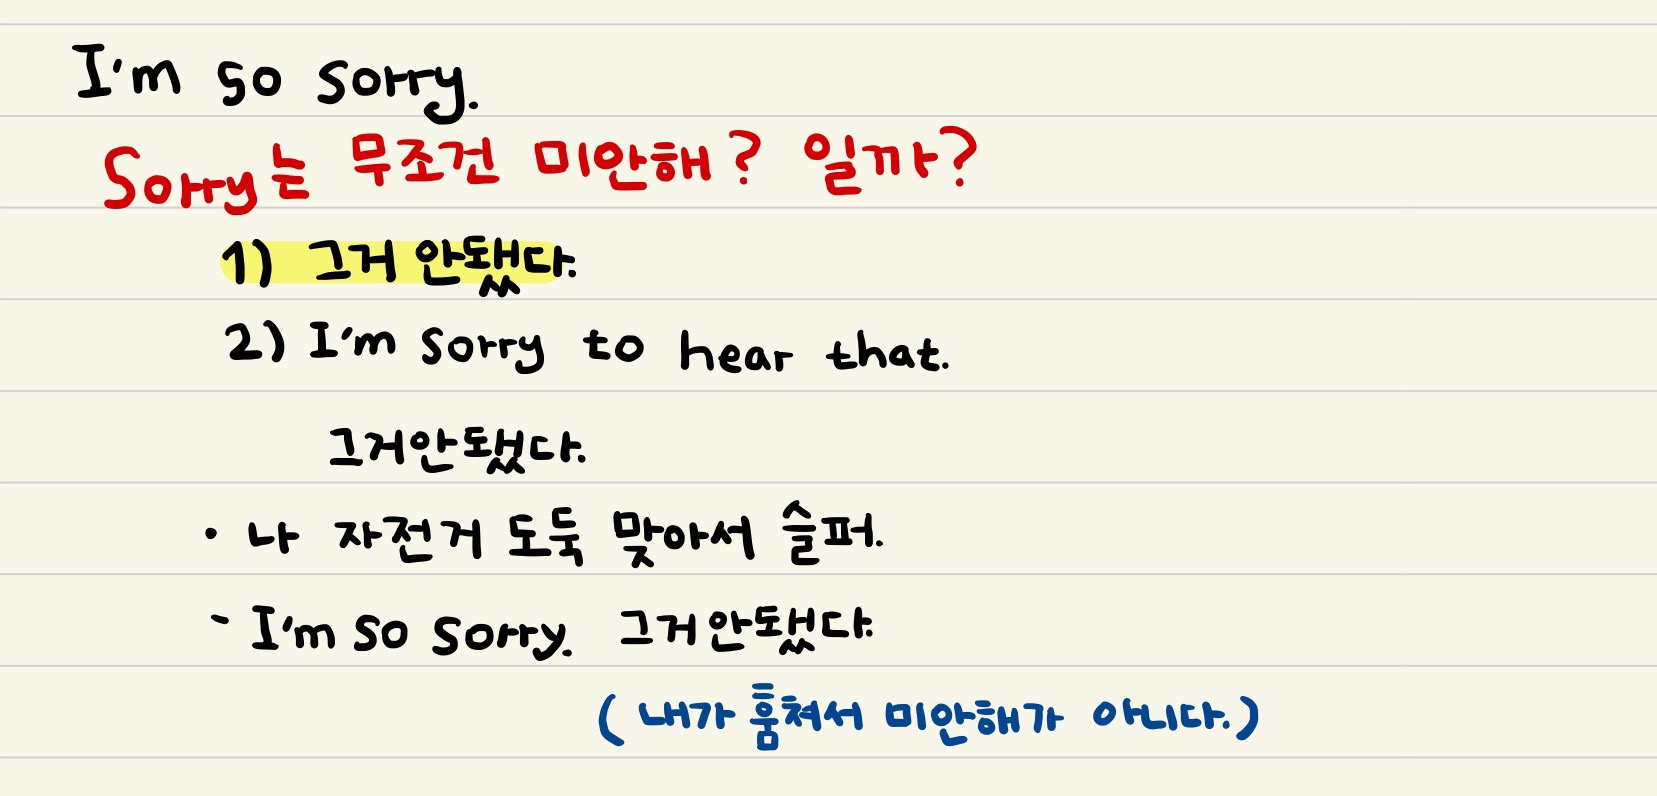 I'm so sorry.
Sorry는 무조건 미안해? 일까?
1) 그거 안됐다.
2) I'm sorry to hear that.
그거안됐다.
· 나 자전거 도둑 맞아서 슬퍼.
- I'm so sorry. 그거안됐다.
(내가 훔쳐서 미안해가 아니다.)